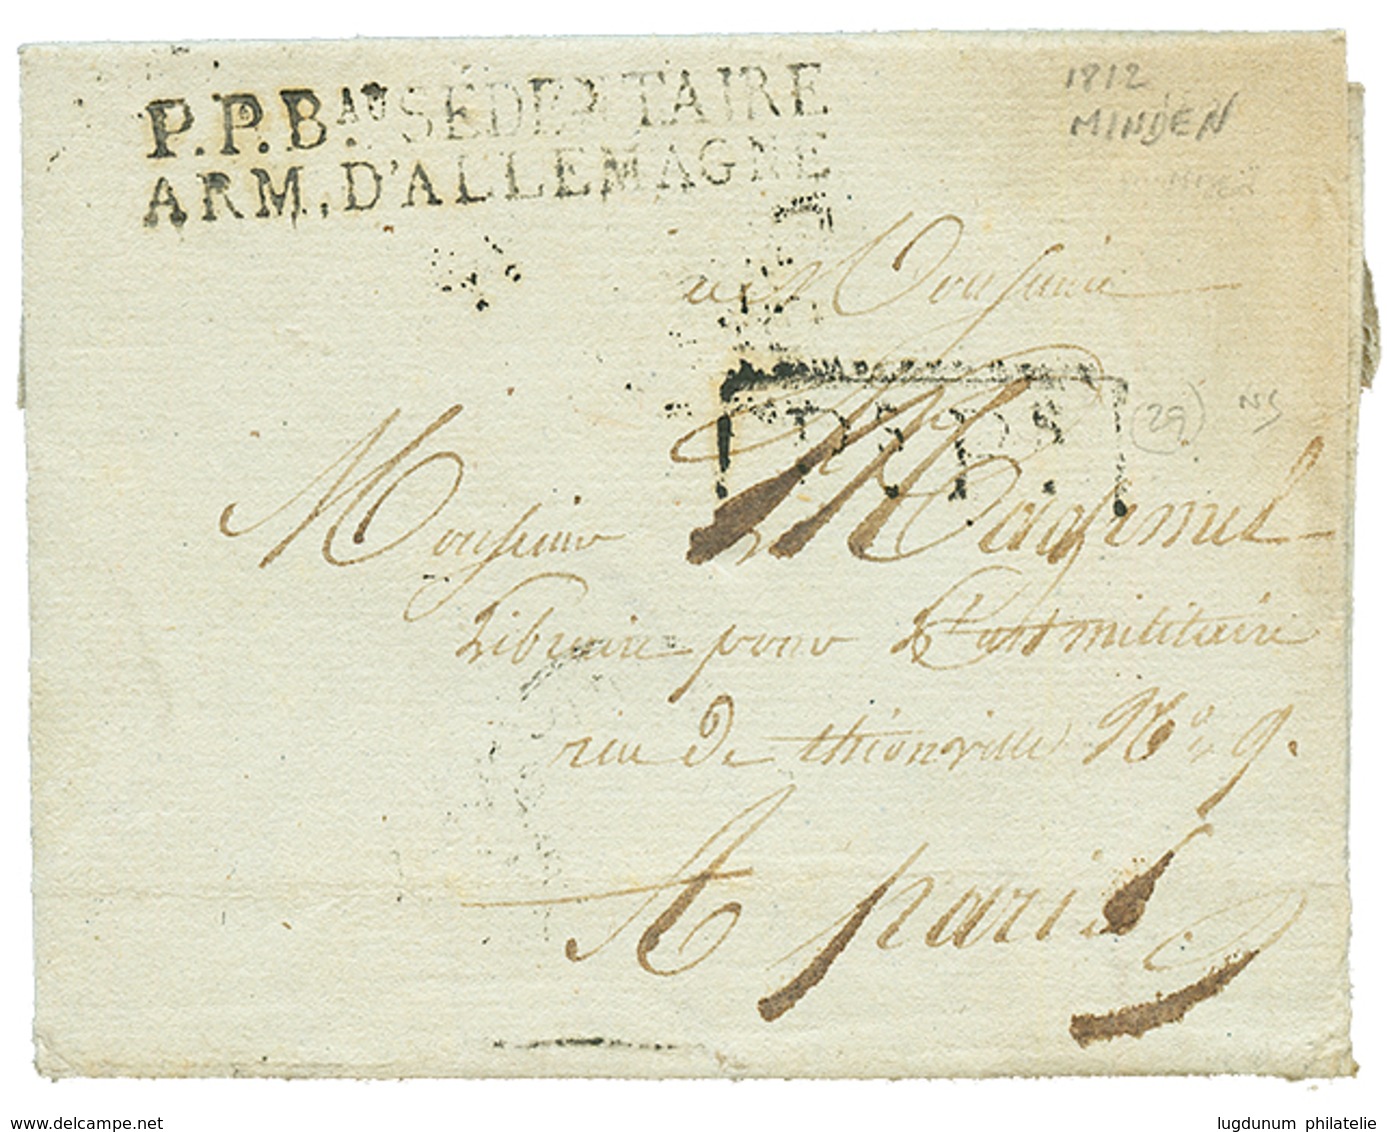 P.P.Bau. SÉDENTAIRE
ARM. D'ALLEMAGNE
1812
MINDEN
a Monsieur
P.S.P.S.
(29) NS
Monsieur Magimel
Libraire pour L'art militaire
rue de thionville No. 9.
A paris
www.delcampe.net
lugdunum philatelie